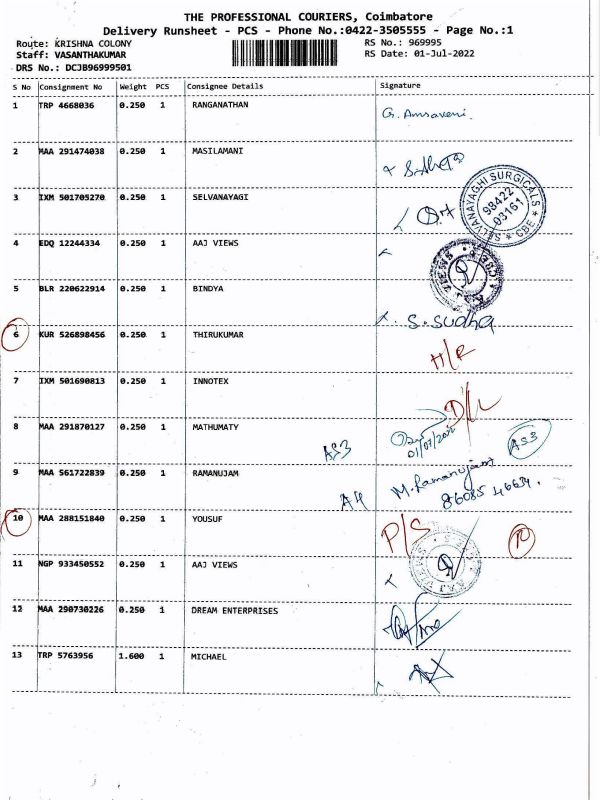 THE PROFESSIONAL COURIERS, Coimbatore
Delivery Runsheet - PCS - Phone No.:0422-3505555 - Page No.:1
Route: KRISHNA COLONY
RS No.: 969995
Staff: VASANTHAKUMAR
RS Date: 01-Jul-2022
DRS No.: DCJB96999501
S No Consignment No Weight PCS Consignee Details Signature
1 TRP 4668036 0.250 1 RANGANATHAN G. Amsaveni.
2 MAA 291474038 0.250 1 MASILAMANI
3 IXM 501705270 0.250 1 SELVANAYAGI
SELVANAYAGHI SURGICALS
98422
03161
* CBE *
4 EDQ 12244334 0.250 1 AAJ VIEWS
AAJ VIEWS
5 BLR 220622914 0.250 1 BINDYA S. Sudha
6 KUR 526898456 0.250 1 THIRUKUMAR H/R
7 IXM 501690813 0.250 1 INNOTEX D/L
8 MAA 291870127 0.250 1 MATHUMATY 01/07/2022 AS3
AS3
9 MAA 561722839 0.250 1 RAMANUJAM M. Ramanujam
A4 86085 46634.
10 MAA 288151840 0.250 1 YOUSUF P/S 10
11 NGP 933450552 0.250 1 AAJ VIEWS
AAJ VIEWS
12 MAA 290730226 0.250 1 DREAM ENTERPRISES
13 TRP 5763956 1.600 1 MICHAEL